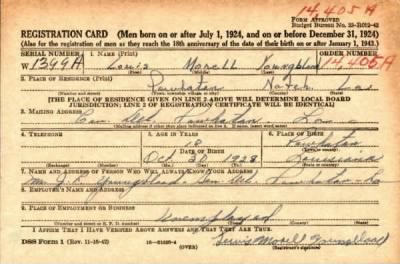 14,405 A
Form Approved
Budget Bureau No. 33-R012-42
REGISTRATION CARD (Men born on or after July 1, 1924, and on or before December 31, 1924)
(Also for the registration of men as they reach the 18th anniversary of the date of their birth on or after January 1, 1943.)
SERIAL NUMBER 1. NAME (Print) ORDER NUMBER
W 1399A Louis Morell Youngblood 14,405A
(First) (Middle) (Last)
2. PLACE OF RESIDENCE (Print)
Powhatan Natch La
(Number and street) (Town, township, village or city) (County) (State)
[THE PLACE OF RESIDENCE GIVEN ON LINE 2 ABOVE WILL DETERMINE LOCAL BOARD
JURISDICTION; LINE 2 OF REGISTRATION CERTIFICATE WILL BE IDENTICAL]
3. MAILING ADDRESS
Gen. Del. Powhatan La
[Mailing address if other than place indicated on line 2. If same, insert word same]
4. TELEPHONE 5. AGE IN YEARS 6. PLACE OF BIRTH
18 Powhatan
DATE OF BIRTH (Town or county)
Oct 30 1928 Louisiana
(Exchange) (Number) (Mo.) (Day) (Yr.) (State or country)
7. NAME AND ADDRESS OF PERSON WHO WILL ALWAYS KNOW YOUR ADDRESS
Youngblood, Gen. Del. Powhatan - La
8. EMPLOYER'S NAME AND ADDRESS
9. PLACE OF EMPLOYMENT OR BUSINESS
Unemployed
(Number and street or R. F. D. number) (Town) (County) (State)
I AFFIRM THAT I HAVE VERIFIED ABOVE ANSWERS AND THAT THEY ARE TRUE.
DSS Form 1 (Rev. 11-16-42) (OVER) Louis Morell Youngblood
(Registrant's signature)